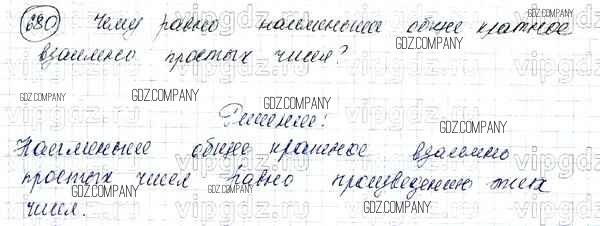 680) Чему равно наименьшее общее кратное
взаимно простых чисел?
Решение:
Наименьшее общее кратное взаимно
простых чисел равно произведению этих
чисел.
GDZ.COMPANY
GDZ.COMPANY
GDZ.COMPANY
GDZ.COMPANY
GDZ.COMPANY
GDZ.COMPANY
GDZ.COMPANY
GDZ.COMPANY
GDZ.COMPANY
vipgdz.ru